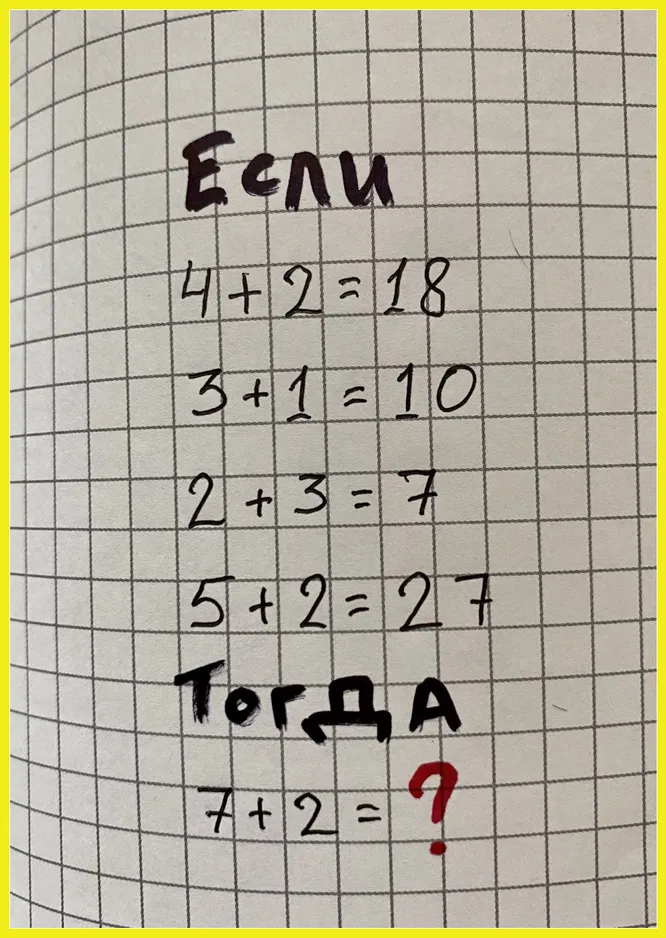 Если
4+2=18
3+1=10
2+3=7
5+2=27
ТогДА
7+2=?